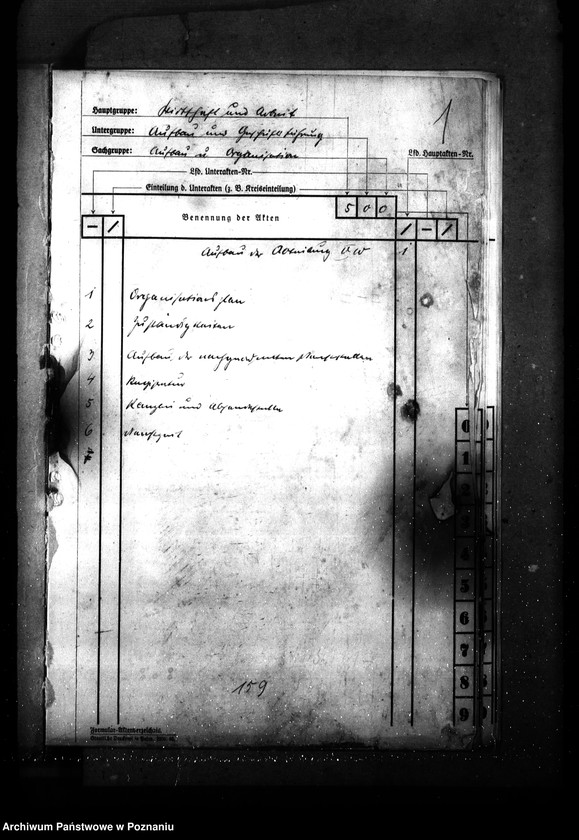 1
Hauptgruppe: Wirtschaft und Arbeit
Untergruppe: Aufbau und Geschäftsführung
Sachgruppe: Aufbau u Organisation
Lfd. Hauptakten-Nr.
Lfd. Unterakten-Nr.
Einteilung d. Unterakten (z. B. Kreiseinteilung)
5 0 0
– / Benennung der Akten / – /
Aufbau der Abteilung 1
1 Organisationsplan
2 Zuständigkeiten
3 Aufbau der nachgeordneten Dienststellen
4 Registratur
5 Kanzlei und Absendestelle
6 Dienstzeit
0
1
2
3
4
5
6
7
8
9
159
Formular-Aktenverzeichnis.
Archiwum Państwowe w Poznaniu